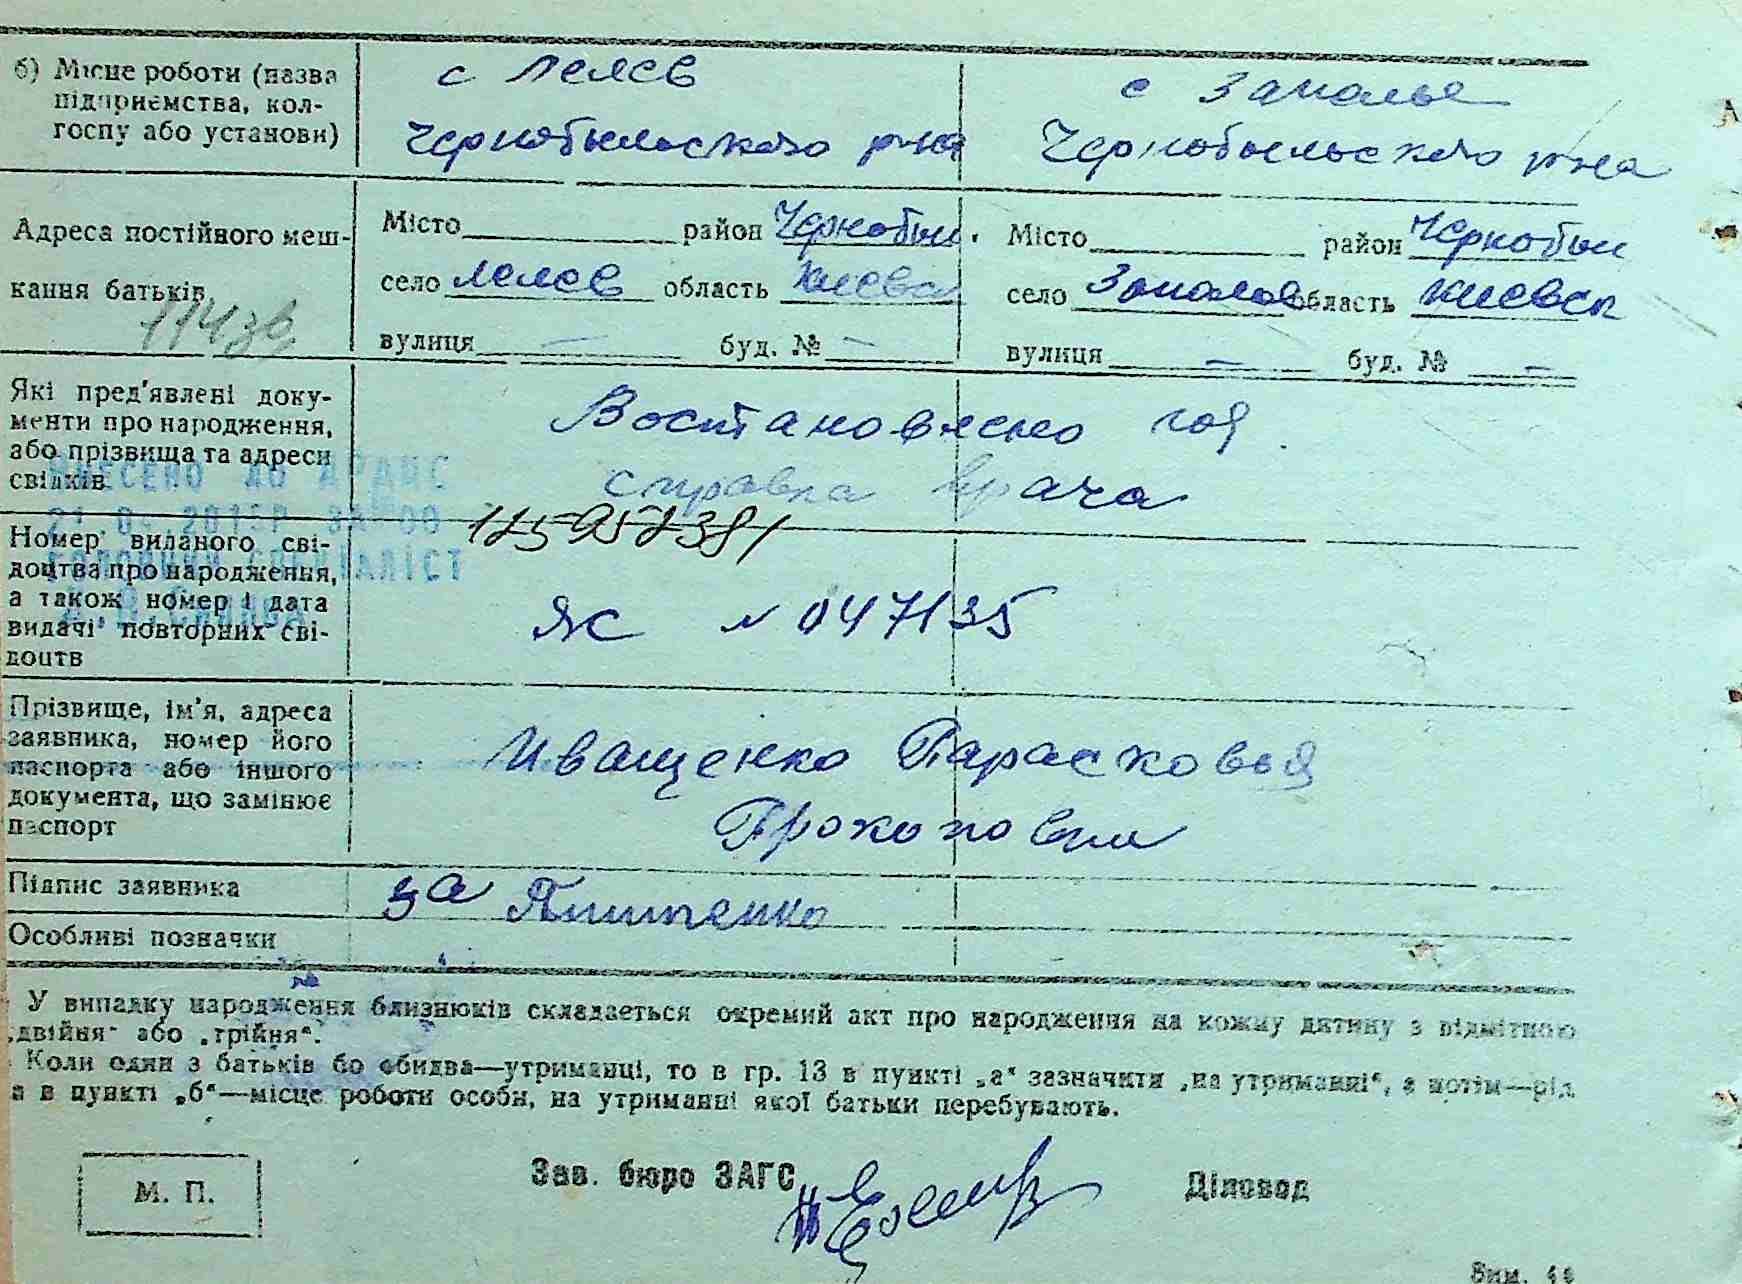 б) Місце роботи (назва підприємства, колгоспу або установи)
с Лелев
Чернобыльского р-на
с Заполье
Чернобыльского р-на
Адреса постійного меш-
кання батьків
Місто район Чернобыл.
село Лелев область Киевск
вулиця — буд. № —
Місто район Чернобыл
село область Киевск
вулиця — буд. № —
Які пред'явлені доку-
менти про народження,
або прізвища та адреси
свідків
Востановлено
справка врача
ВНЕСЕНО ДО
ГОЛОВНИЙ СПЕЦІАЛІСТ
Номер виданого сві-
доцтва про народження,
а також номер і дата
видачі повторних сві-
доцтв
ЯС № 047135
Прізвище, ім'я, адреса
заявника, номер його
паспорта або іншого
документа, що замінює
паспорт
Иващенко Парасковья
Прокоповна
Підпис заявника
за
Особливі позначки
У випадку народження близнюків складається окремий акт про народження на кожну дитину з відміткою
„двійня" або „трійня".
Коли один з батьків бо обидва—утриманці, то в гр. 13 в пункті „а" зазначити „на утриманні", а потім—рід
а в пункті „б"—місце роботи особи, на утриманні якої батьки перебувають.
М. П.
Зав. бюро ЗАГС
Діловод